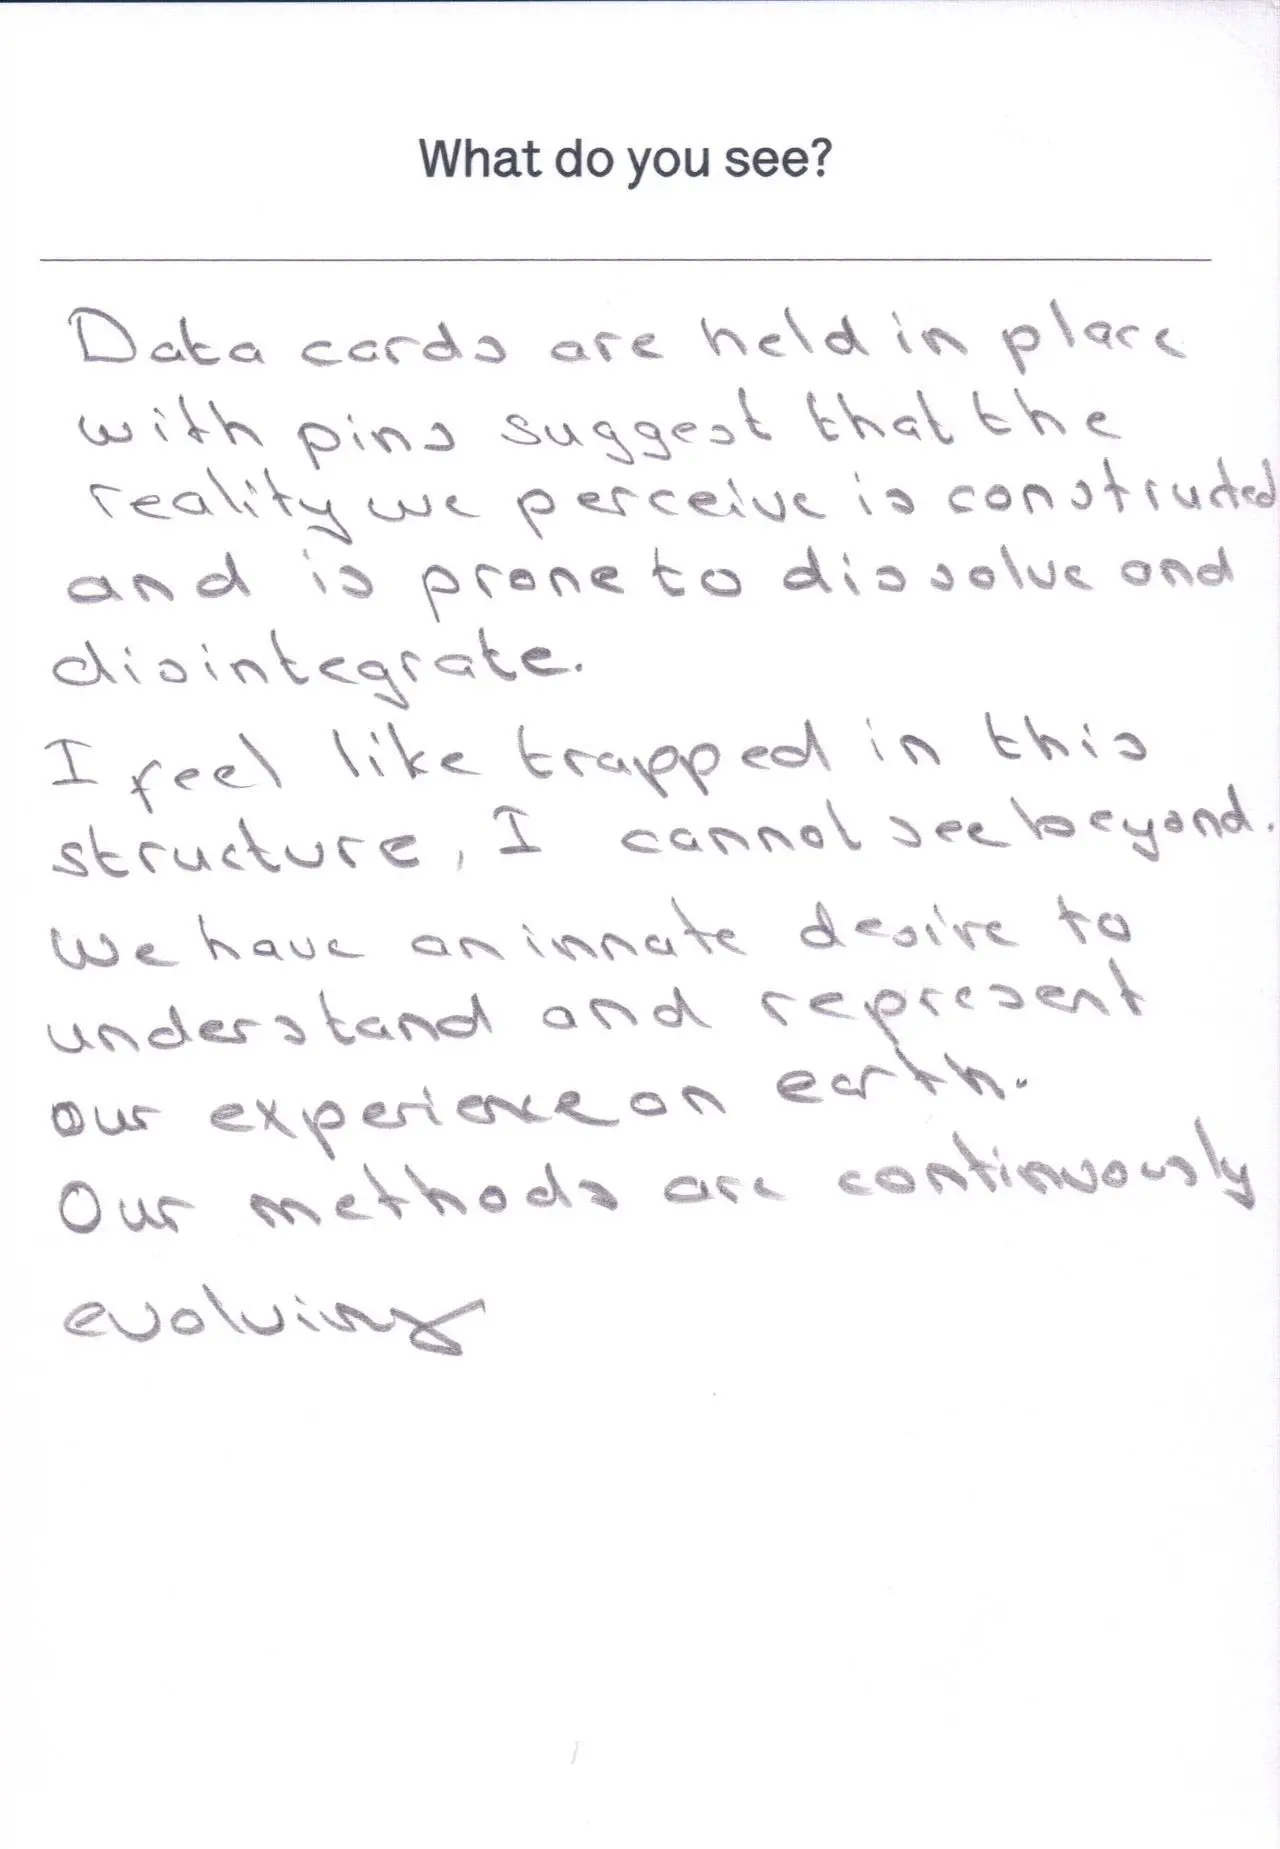 What do you see?
Data cards are held in place
with pins suggest that the
reality we perceive is constructed
and is prone to dissolve and
disintegrate.
I feel like trapped in this
structure, I cannot see beyond.
We have an innate desire to
understand and represent
our experience on earth.
Our methods are continuously
evolving